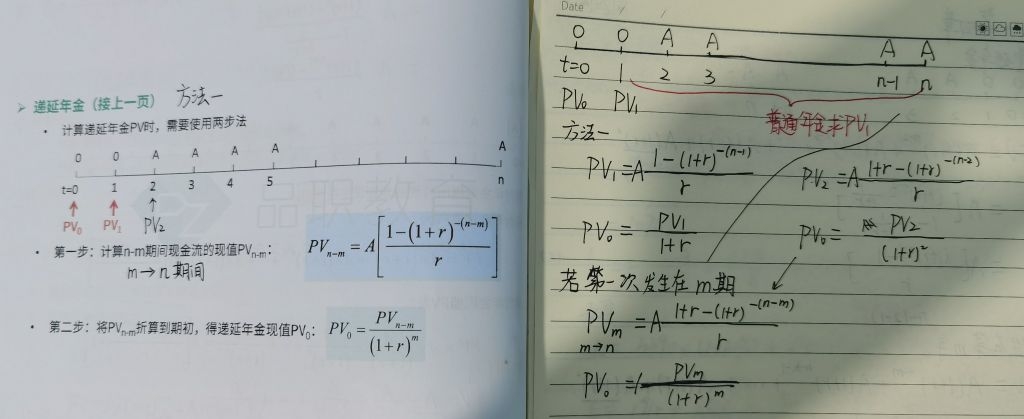 ➤ 递延年金（接上一页） 方法一
• 计算递延年金PV时，需要使用两步法
0 0 A A A A A
t=0 1 2 3 4 5 n
PV₀ PV₁ PV₂
品职教育
• 第一步：计算n-m期间现金流的现值PVₙ₋ₘ： PVₙ₋ₘ = A[(1-(1+r)^-(n-m))/r]
m→n期间
• 第二步：将PVₙ₋ₘ折算到期初，得递延年金现值PV₀： PV₀ = PVₙ₋ₘ/(1+r)^m
Date
0 0 A A A A
t=0 1 2 3 n-1 n
PV₀ PV₁
普通年金求PV₁
方法一
PV₁=A (1-(1+r)^-(n-1))/r PV₂=A (1+r-(1+r)^-(n-2))/r
PV₀= PV₁/(1+r) PV₀= PV₂/(1+r)²
若第一次发生在m期
PVₘ = A (1+r-(1+r)^-(n-m))/r
m→n
PV₀ = PVₘ/(1+r)^m